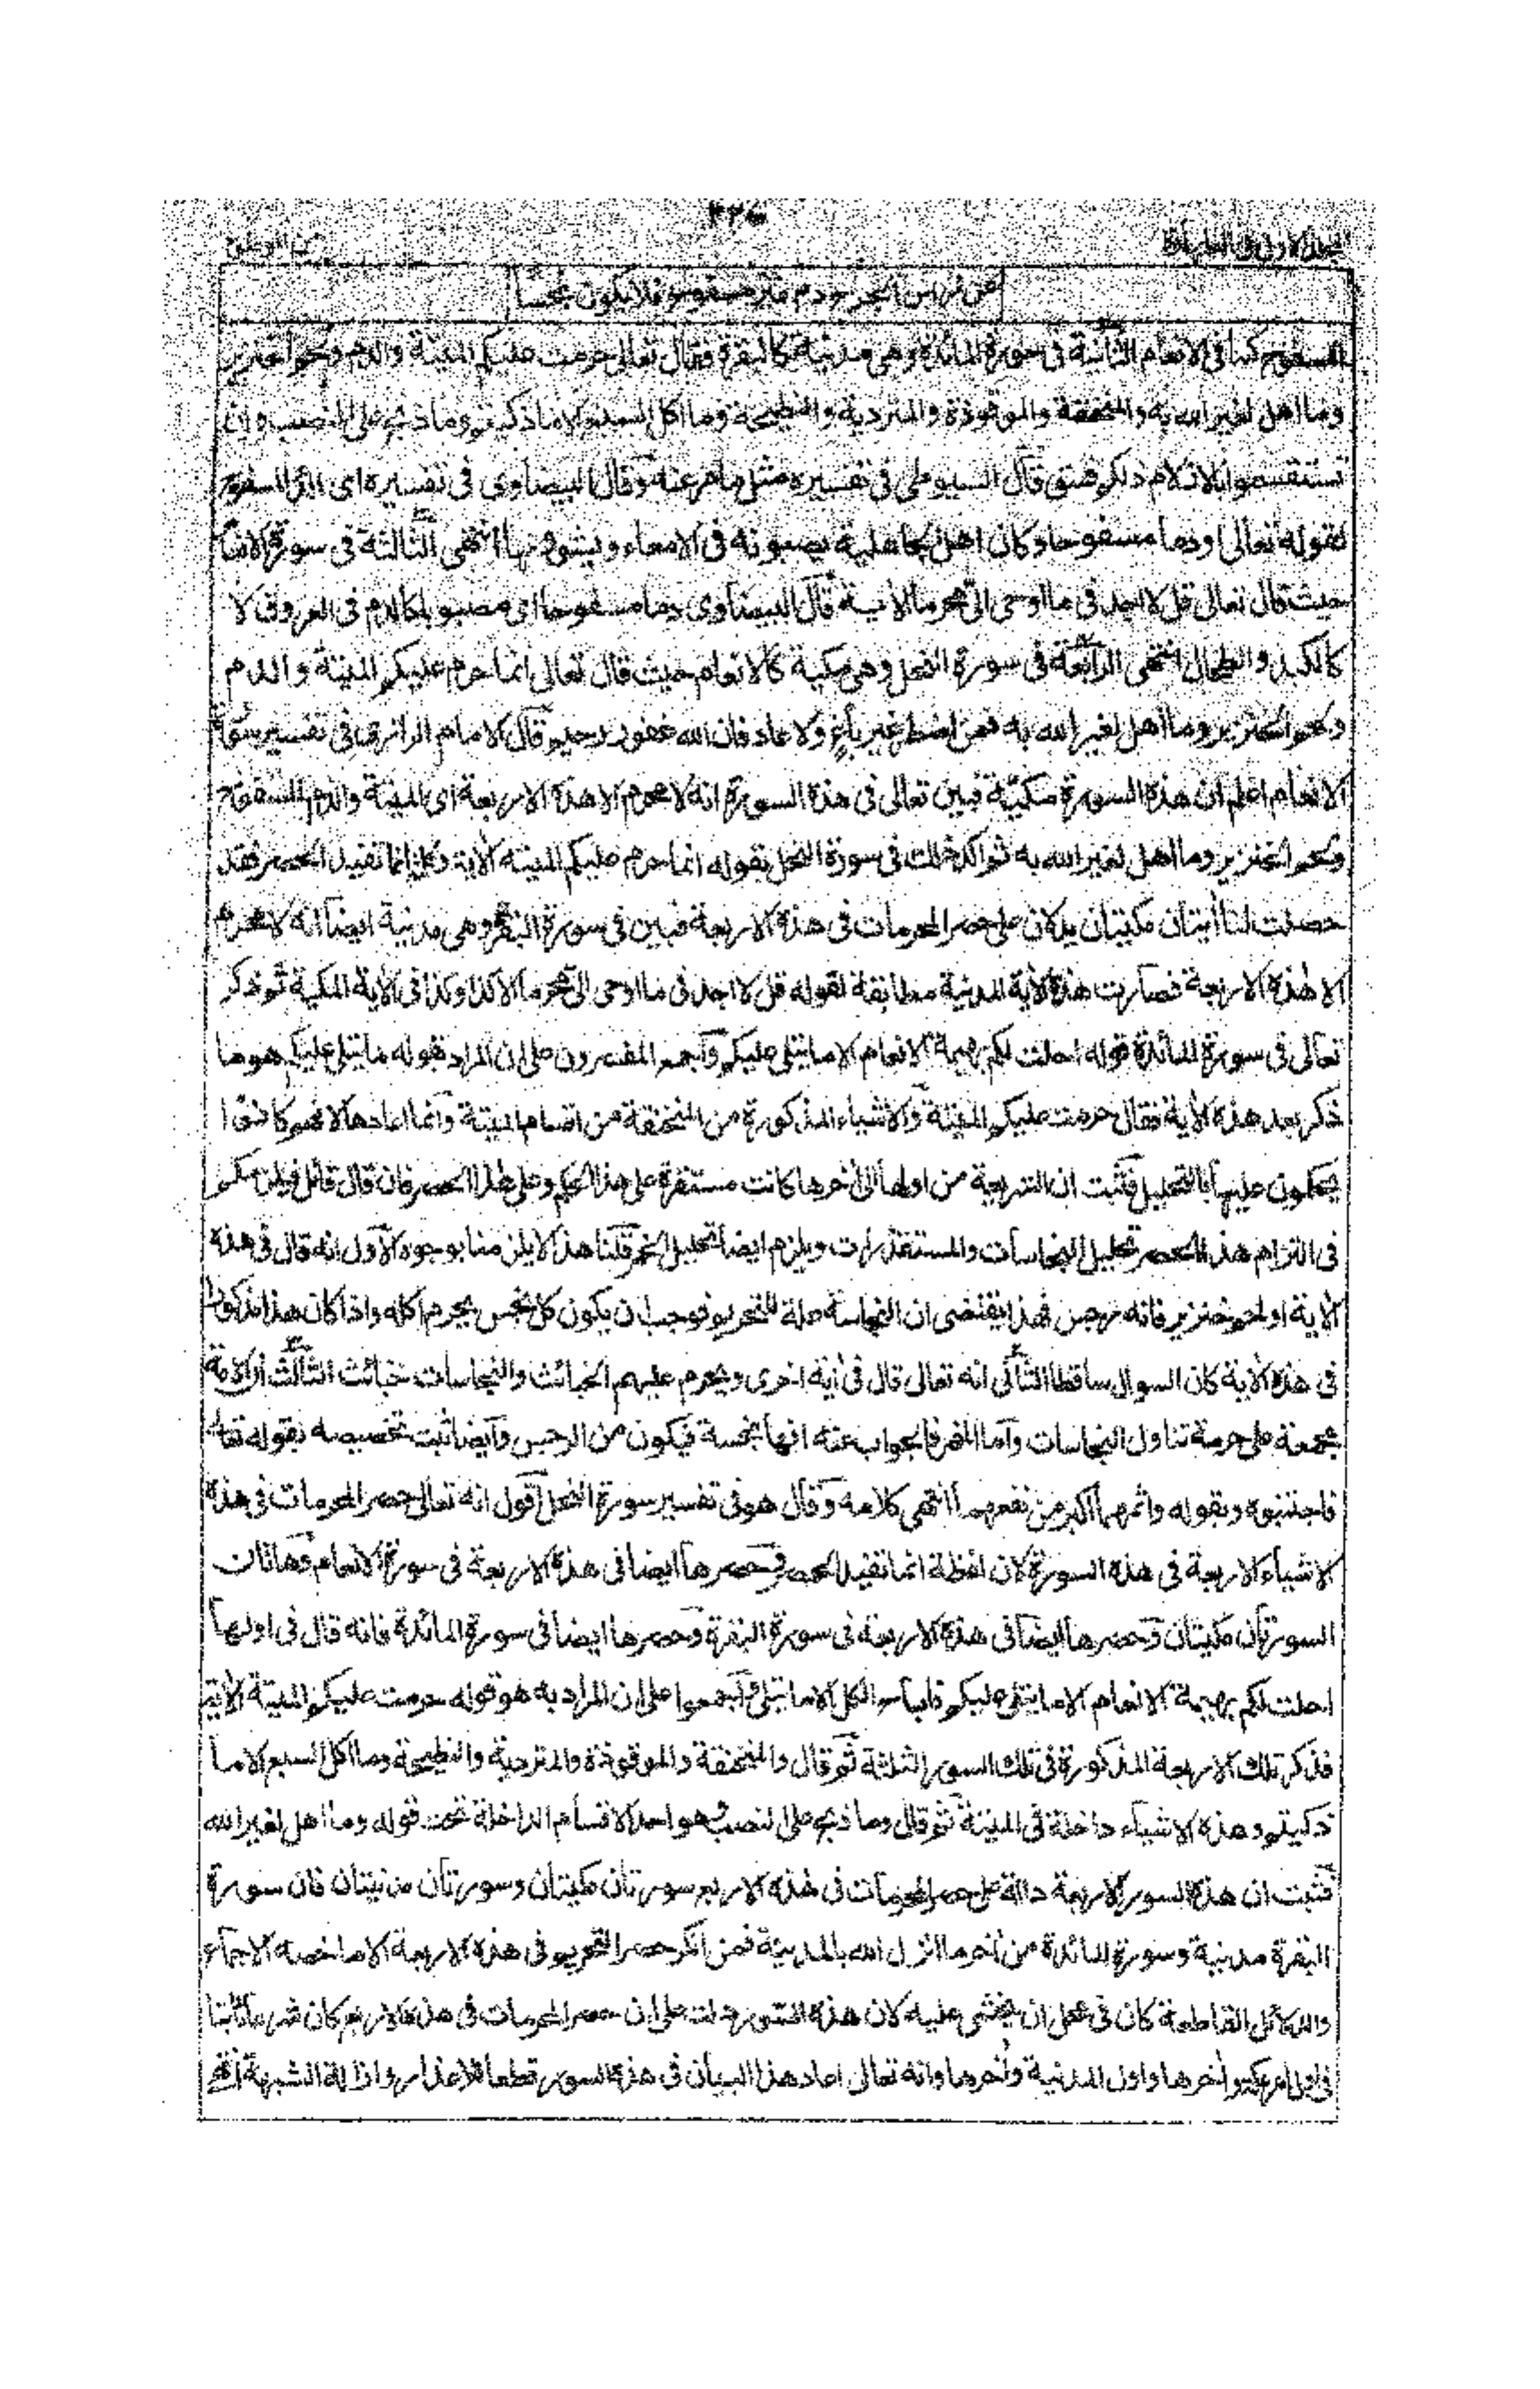 المسفوح كما في الانعام الثانية في سورة المائدة وهي مدنية كالبقرة فقال تعالى حرمت عليكم الميتة والدم ولحم الخنزير
وما اهل لغير الله به والمنخنقة والموقوذة والمتردية والنطيحة وما اكل السبع الا ما ذكيتم وما ذبح على النصب وان
تستقسموا بالازلام ذلكم فسق قال السيوطي في تفسيره مثل ما مر عنه وقال البيضاوي في تفسيره اى الدم المسفوح
لقوله تعالى او دما مسفوحا وكان اهل الجاهلية يصبونه في الامعاء ويشوونها انتهى الثالثة في سورة الانعام
حيث قال تعالى قل لا اجد في ما اوحى الىّ محرما الآية قال البيضاوي دما مسفوحا اى مصبوبا كالدم في العروق لا
كالكبد والطحال انتهى الرابعة في سورة النحل وهى مكية كالانعام حيث قال تعالى انما حرم عليكم الميتة والدم
ولحم الخنزير وما اهل لغير الله به فمن اضطر غير باغ ولا عاد فان الله غفور رحيم قال الامام الرازي في تفسير سورة
الانعام اعلم ان هذه السورة مكيّة فبين تعالى في هذه السورة انه لا محرم الا هذه الاربعة اى الميتة والدم المسفوح
ولحم الخنزير وما اهل لغير الله به ثم اكد ذلك في سورة النحل بقوله انما حرم عليكم الميتة الآية وكلمة انما تفيد الحصر فقد
حصلت لنا آيتان مكيتان يدلان على حصر المحرمات في هذه الاربعة فبين في سورة البقرة وهى مدنية ايضا انه لا محرم
الا هذه الاربعة فصارت هذه الآية المدنية مطابقة لقوله قل لا اجد في ما اوحى الىّ محرما الا كذا وكذا في الآية المكية ثم ذكر
تعالى في سورة المائدة قوله احلت لكم بهيمة الانعام الا ما يتلى عليكم وأجمع المفسرون على ان المراد بقوله ما يتلى عليكم هو ما
ذكر بعد هذه الآية فقال حرمت عليكم الميتة والاشياء المذكورة من المنخنقة من اقسام الميتة وانما اعادها لانهم كانوا
يحكمون عليها بالتحليل فثبت ان الشريعة من اولها الى آخرها كانت مستقرة على هذا الحكم وعلى هذا الحصر فان قال قائل فيلزمكم
في التزام هذا الحصر تحليل النجاسات والمستقذرات ويلزم ايضا تحليل الخمر قلنا هذا لا يلزمنا بوجوه الأول انه قال في هذه
الآية او لحم خنزير فانه رجس فهذا يقتضى ان النجاسة علة للتحريم فوجب ان يكون كل نجس يحرم اكله واذا كان هذا مذكورا
في هذه الآية كان السوال ساقطا الثاني انه تعالى قال في آية اخرى ويحرم عليهم الخبائث والنجاسات خبائث الثالث ان الامة
مجمعة على حرمة تناول النجاسات وأما الخمر فالجواب عنه انها نجسة فيكون من الرجس وأيضا ثبت تخصيصه بقوله تعالى
فاجتنبوه وبقوله واثمهما اكبر من نفعهما انتهى كلامه وقال هو في تفسير سورة النحل أقول انه تعالى حصر المحرمات في هذه
الاشياء الاربعة في هذه السورة لان لفظة انما تفيد الحصر وحصرها ايضا في هذه الاربعة في سورة الانعام وهاتان
السورتان مكيتان وحصرها ايضا في هذه الاربعة في سورة البقرة وحصرها ايضا في سورة المائدة فانه قال في اولها
احلت لكم بهيمة الانعام الا ما يتلى عليكم فاباح الكل الا ما يتلى وأجمعوا على ان المراد به هو قوله حرمت عليكم الميتة الآية
فذكر تلك الاربعة المذكورة في تلك السور الثلثة ثم قال والمنخنقة والموقوذة والمتردية والنطيحة وما اكل السبع الا ما
ذكيتم وهذه الاشياء داخلة في الميتة ثم قال وما ذبح على النصب هو احد الاقسام الداخلة تحت قوله وما اهل لغير الله
فثبت ان هذه السور الاربعة دالة على حصر المحرمات في هذه الاربع سورتان مكيتان وسورتان مدنيتان فان سورة
البقرة مدنية وسورة المائدة من آخر ما انزل الله بالمدينة فمن انكر حصر التحريم في هذه الاربعة الا ما خصه الاجماع
والدلائل القاطعة كان في محل ان يخشى عليه لان هذه السور دلت على ان حصر المحرمات في هذه الاربع كان شرعا ثابتا
في اول امر مكة وآخرها واول المدنية وآخرها وانه تعالى اعاد هذا البيان في هذه السور قطعا للاعذار وازالة الشبهة انتهى